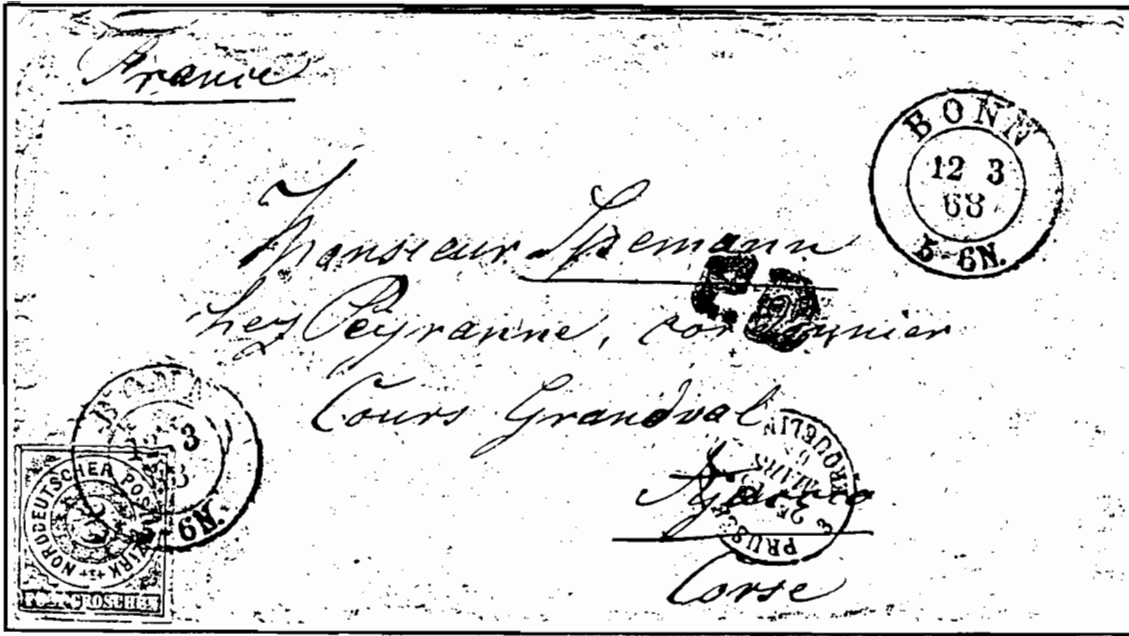 France
BONN
12 3
68
5-6N.
Monsieur Spemann
chez Peyranne, cordonnier
Cours Grandval
Ajaccio
Corse
PRUSSE
MARS
ERQUELIN
3
6N.
NORDDEUTSCHER POSTBEZIRK
GROSCHEN